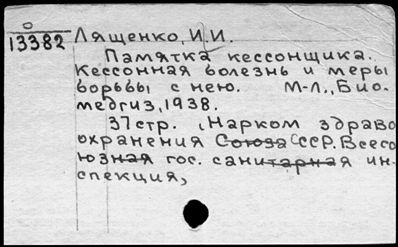 13382 Лященко, И.И.
Памятка кессонщика.
Кессонная болезнь и меры
борьбы с нею. М-Л., Био-
медгиз, 1938.
37 стр. (Нарком здраво
охранения Союза ССР. Всесо
юзная гос. санитарная ин-
спекция,